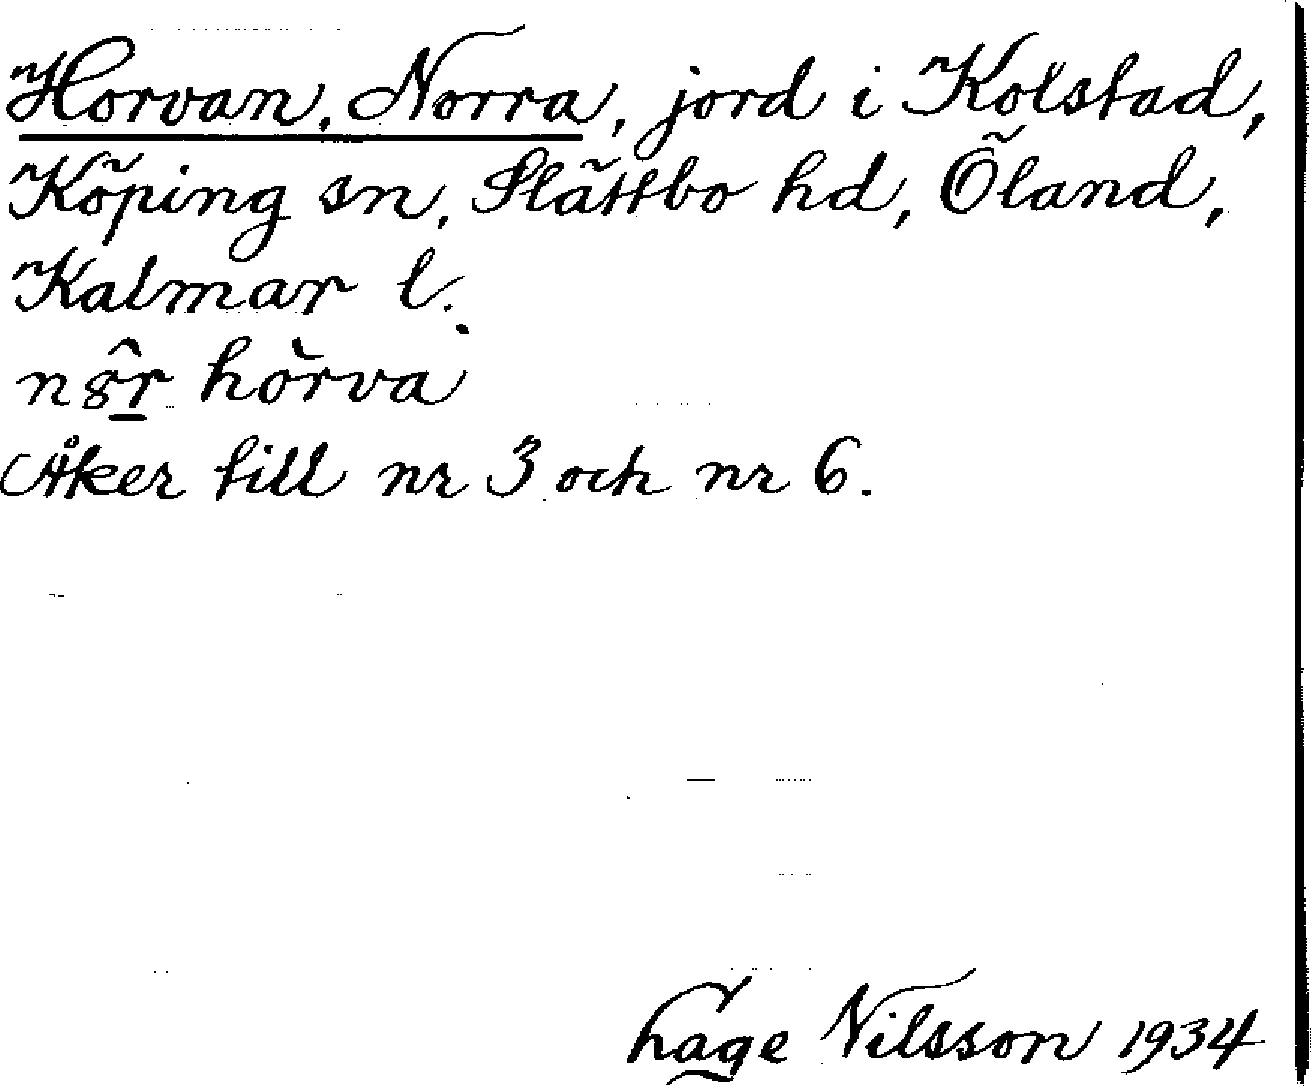 Horvan, Norra, jord i Kolstad,
Köping sn, Slättbo hd, Öland,
Kalmar l.
hòrva
Åker till nr 3 och nr 6.
Hage Nilsson 1934